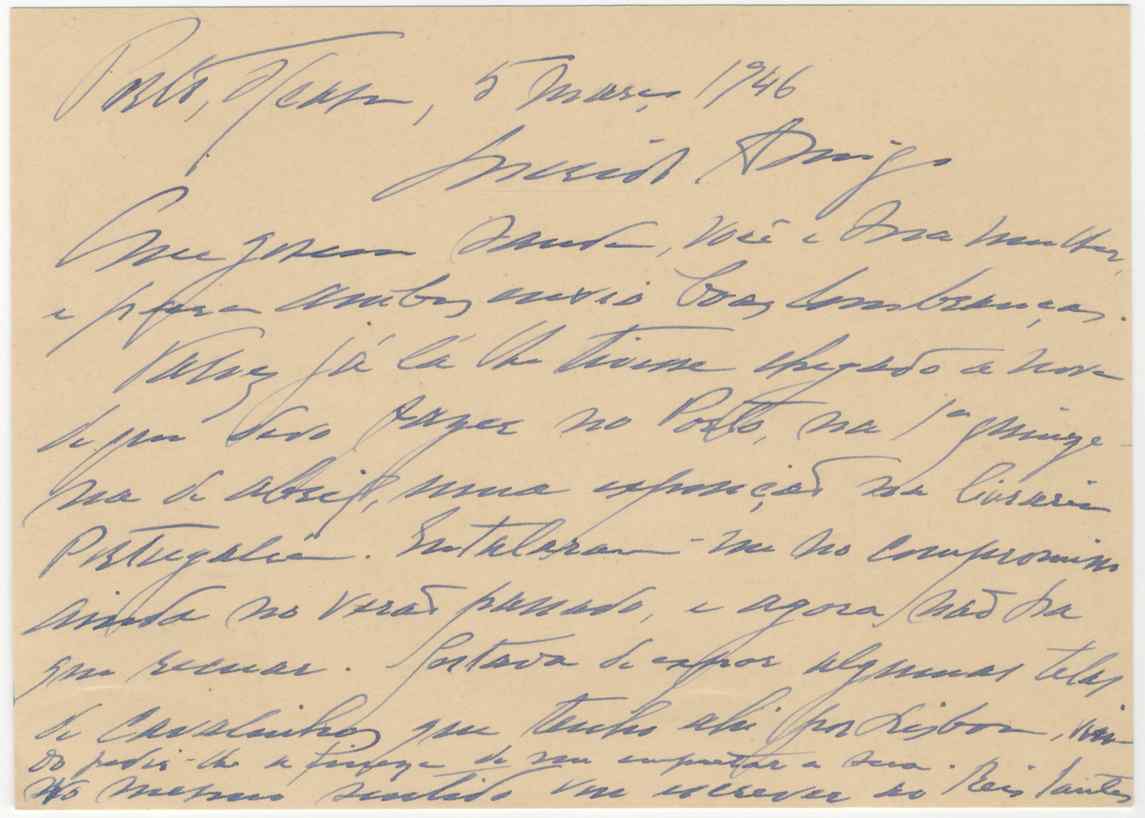 Porto, 5 Março 1946
Querido Amigo
Que gozem saude, você e sua mulher,
e para ambos envio boas lembranças.
Talvez já lá lhe tivesse chegado a nova
de que devo fazer no Porto, na 1ª quinze-
na de abril, uma exposição na livraria
Portugalia. Entalaram-me no compromisso
ainda no verão passado, e agora não ha
que recuar. Gostava de expor algumas telas
de cavalinhos que tenho ahi por Lisboa, vin-
do pedir-lhe a fineza de me emprestar a sua.
No mesmo sentido vou escrever ao Reis Santos